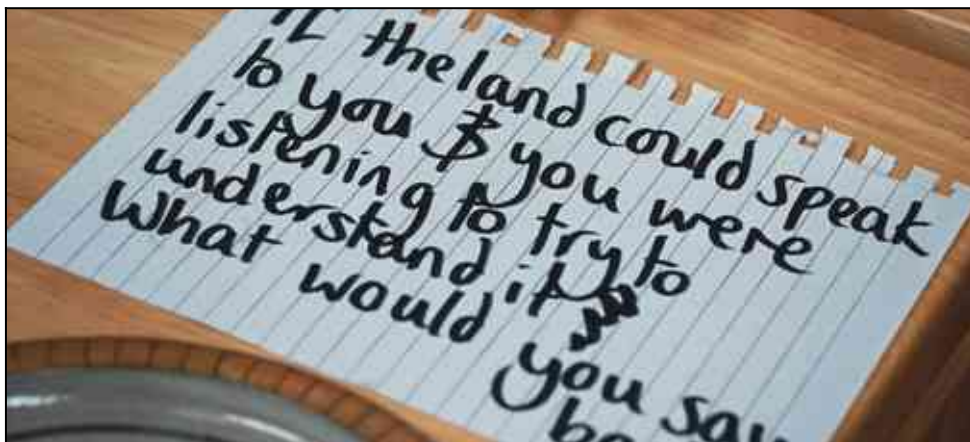 If the land could speak
to you & you were
listening to try to
understand it
What would you say
ba